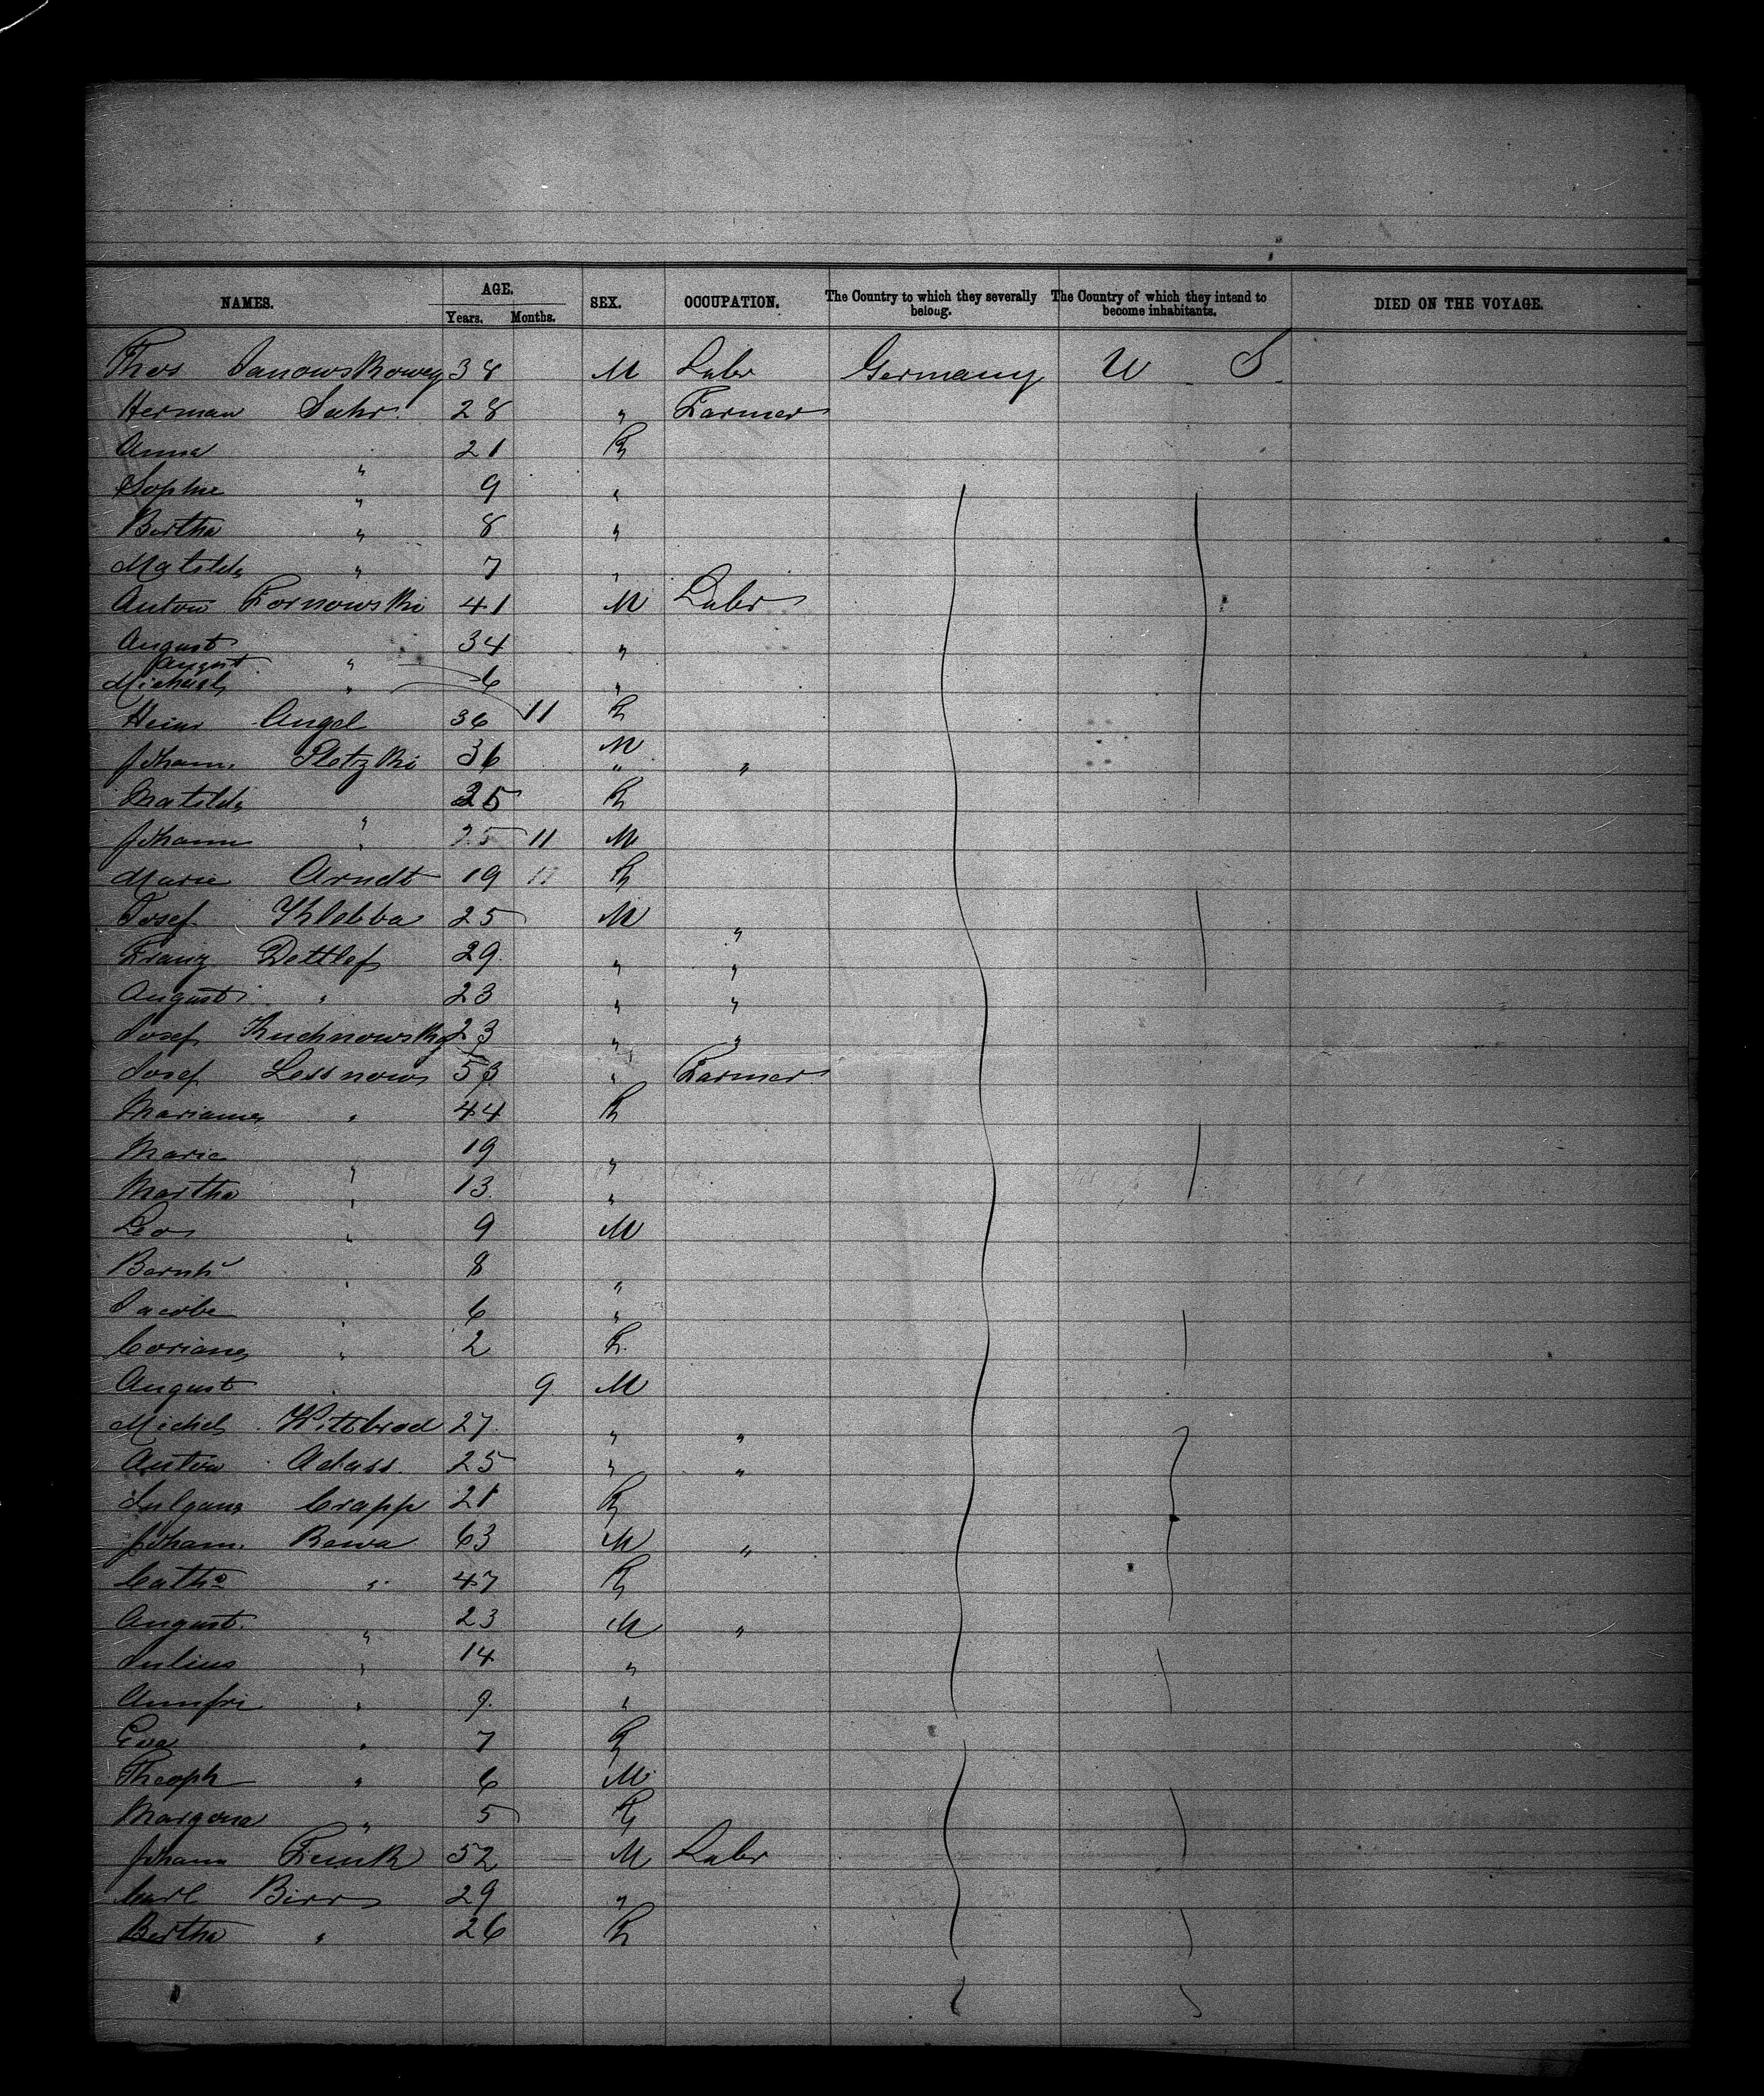 NAMES. AGE. SEX. OCCUPATION. The Country to which they severally belong. The Country of which they intend to become inhabitants. DIED ON THE VOYAGE.
Years. Months.
Thos Janowskowey 38 M Labr Germany U S
Herman Sahr. 28 " Farmer
Anna " 21 F
Sophie " 9 "
Bertha " 8 "
Matilda " 7 "
Anton Fornowski 41 M Labr
August 34 "
August "
Michael " 6 "
Heinr Angel 36 11 F
Johann. Pletzki 36 M " "
Matilda " 25 F
Johann " 11 M
Marie Arndt 19 11 F
Josef Klebba 25 M "
Franz Dettlef 29. " "
August " 23 " "
Josef Kuchnowsky 23 " "
Josef Lessnow 53 " Farmer
Mariane " 44 F
Marie " 19 "
Martha " 13 "
Leo " 9 M
Bernh " 8 "
Jacobe " 6 "
Coriane " 2 F.
August " 9 M
Michel Kittbrod 27. " "
Anton Adass. 25 " "
Crapp 21 F
Johann. Rewa 63 M "
Cath " 47 F
August. " 23 M "
Julius " 14 "
" 9. "
Eva " 7 F
Theoph " 6 M
" 5 F
Johann Funk 52 M Labr
Carl Birr 29 "
Bertha " 26 F